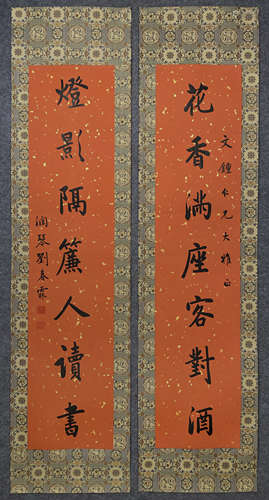 花香满座客對酒
文鐘仁兄大雅正
燈影隔簾人讀書
潤琴劉春霖